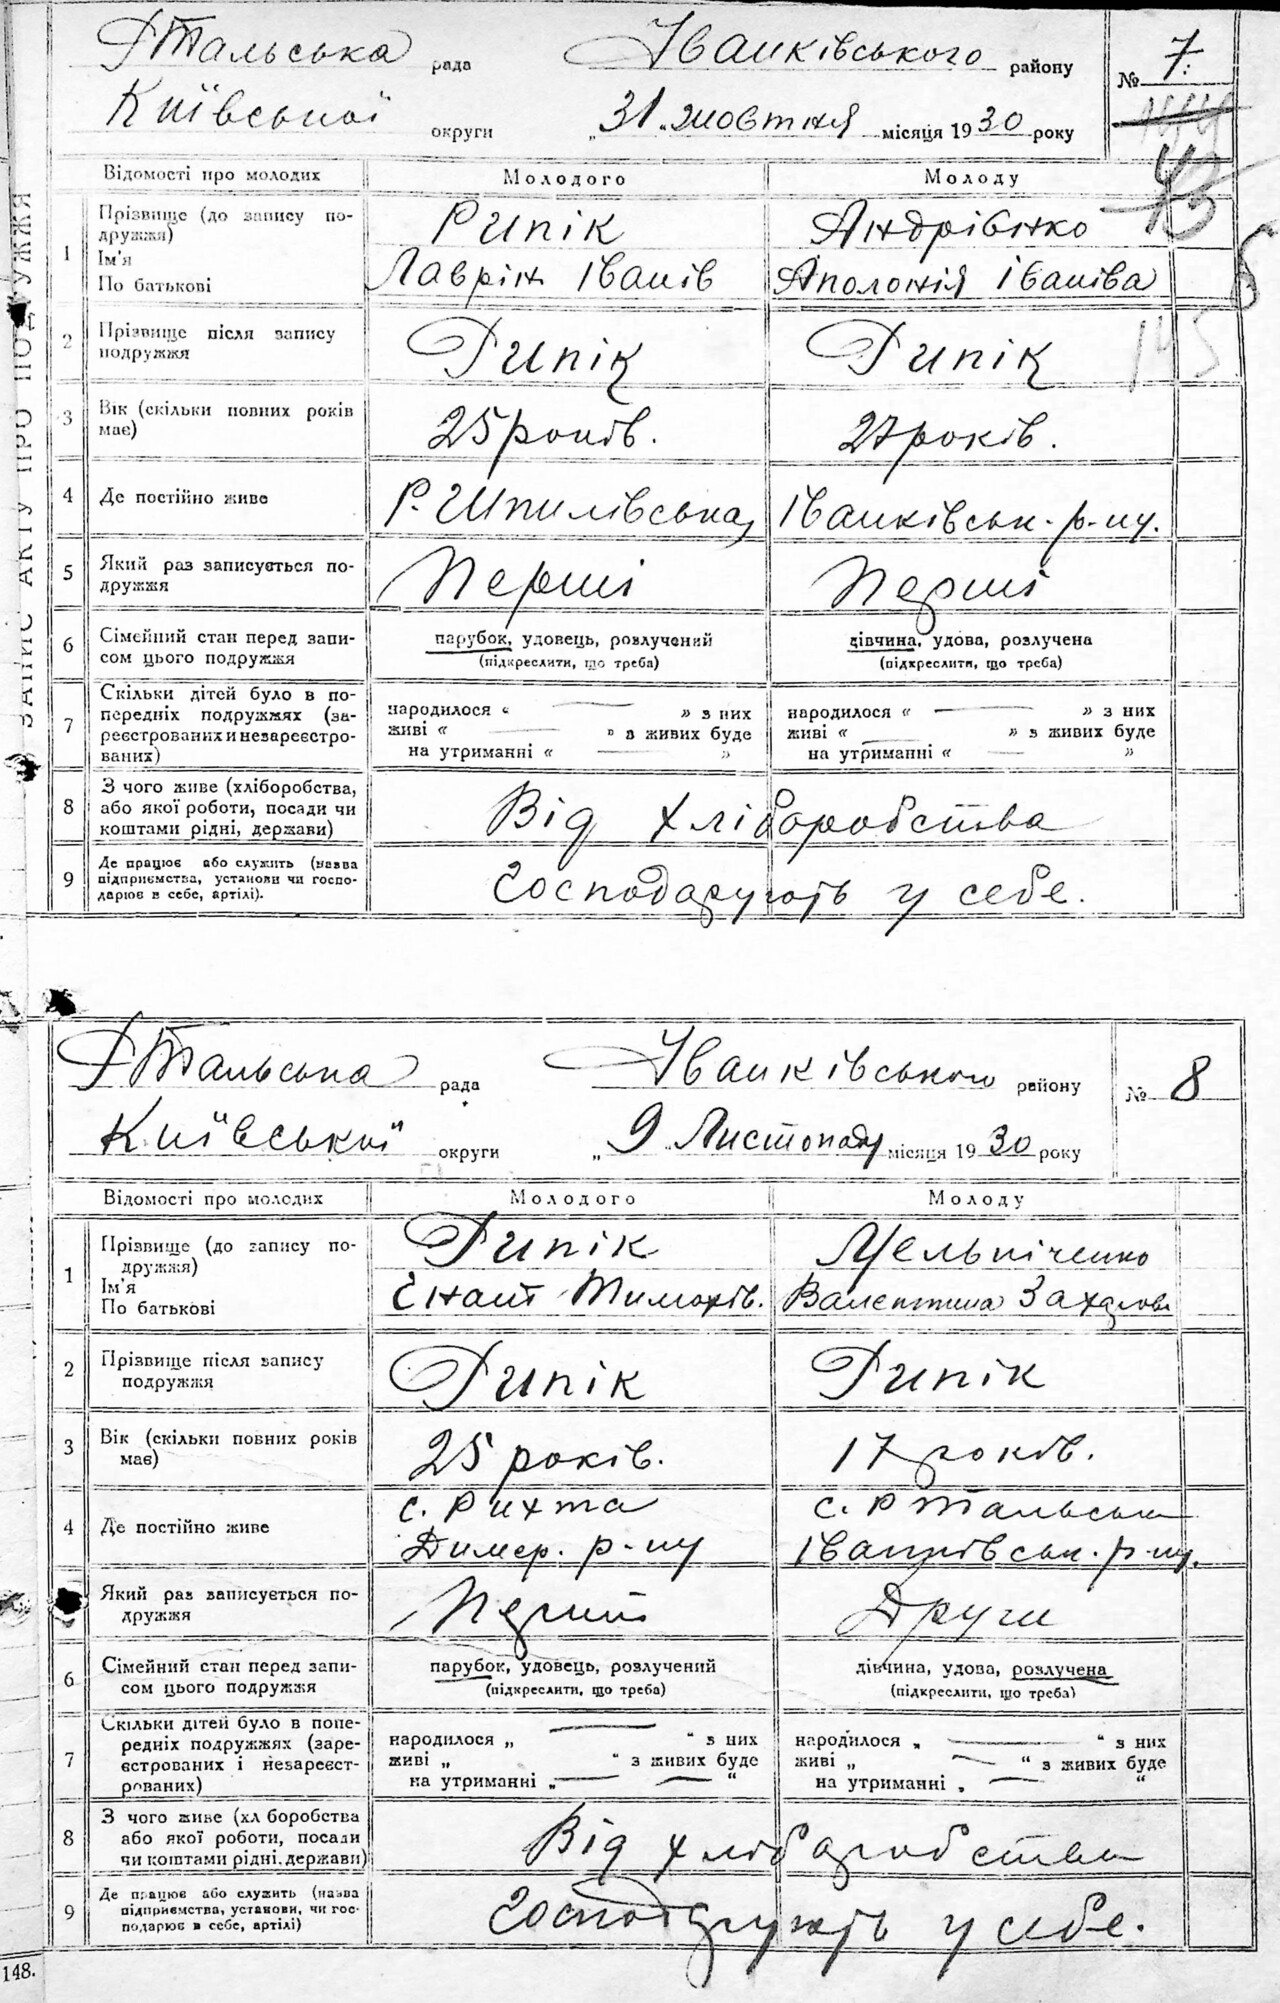 РТальська рада Іванківського району № 7
Київської округи „ 31 " жовтня місяця 1930 року
43
145
ЗАПИС АКТУ ПРО ПОДРУЖЖЯ
Відомості про молодих Молодого Молоду
1 Прізвище (до запису по- Рипік Андрієнко
дружжя)
Ім'я Лаврін Іванів Аполонія Іванівa
По батькові
2 Прізвище після запису Рипік Рипік
подружжя
3 Вік (скільки повних років 25 років. 27 років.
має)
4 Де постійно живе Р. Шпилівська, Іванківськ. р-ну.
5 Який раз записується по- Перші Перші
дружжя
6 Сімейний стан перед запи- парубок, удовець, розлучений дівчина, удова, розлучена
сом цього подружжя (підкреслити, що треба) (підкреслити, що треба)
7 Скільки дітей було в по- народилося « » з них народилося « » з них
передніх подружжях (за- живі « » а живих буде живі « » з живих буде
реєстрованих и незареєстро- на утриманні « » на утриманні « »
ваних)
8 З чого живе (хліборобства, Від хліборобства
або якої роботи, посади чи
коштами рідні, держави)
9 Де працює або служить (назва Господарують у себе.
підприємства, установи чи госпо-
дарює в себе, артілі).
РТальська рада Іванківського району № 8
Київської округи „ 9 Листопаду місяця 1930 року
Відомості про молодих Молодого Молоду
1 Прізвище (до запису по- Рипік Мельніченко
дружжя)
Ім'я Єнат Тимохів. Валентина Захарова
По батькові
2 Прізвище після запису Рипік Рипік
подружжя
3 Вік (скільки повних років 25 років. 17 років.
має)
4 Де постійно живе с. Рихта с. РТальська
Димер. р-ну Іванківськ. р-ну.
Який раз записується по- Перший Други
дружжя
6 Сімейний стан перед запи- парубок, удовець, розлучений дівчина, удова, розлучена
сом цього подружжя (підкреслити, що треба) (підкреслити, що треба)
7 Скільки дітей було в попе- народилося „ " з них народилося „ " з них
редніх подружжях (заре- живі „ " з живих буде живі „ " з живих буде
єстрованих і незареєст- на утриманні „ " на утриманні „ "
рованих)
8 З чого живе (хл боробства Від хліборобства
або якої роботи, посади
чи коштами рідні, держави)
9 Де працює або служить (назва Господарують у себе.
підприємства, установи, чи гос-
подарює в себе, артілі)
148.